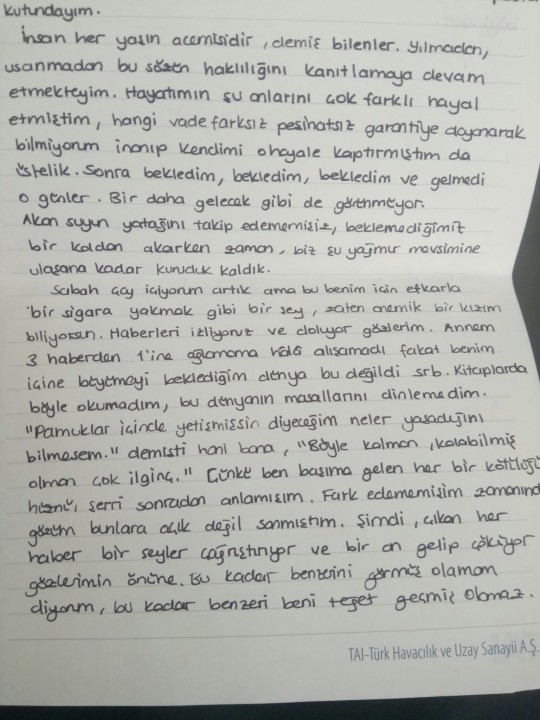 kutundayım.
İnsan her yaşın acemisidir, demiş bilenler. Yılmadan,
usanmadan bu sözün haklılığını kanıtlamaya devam
etmekteyim. Hayatımın şu anlarını çok farklı hayal
etmiştim, hangi vade farksız peşinatsız garantiye dayanarak
bilmiyorum inanıp kendimi o hayale kaptırmıştım da
üstelik. Sonra bekledim, bekledim, bekledim ve gelmedi
o günler. Bir daha gelecek gibi de görünmüyor.
Akan suyun yatağını takip edememişiz, beklemediğimiz
bir koldan akarken zaman, biz şu yağmur mevsimine
ulaşana kadar kuruduk kaldık.
Sabah çay içiyorum artık ama bu benim için efkarla
bir sigara yakmak gibi bir şey, zaten anemik bir kızım
biliyorsun. Haberleri izliyoruz ve doluyor gözlerim. Annem
3 haberden 1'ine ağlamama hâlâ alışamadı fakat benim
içine büyümeyi beklediğim dünya bu değildi srb. Kitaplarda
böyle okumadım, bu dünyanın masallarını dinlemedim.
"Pamuklar içinde yetişmişsin diyeceğim neler yaşadığını
bilmesem." demişti hani bana, "Böyle kalman, kalabilmiş
olman çok ilginç." Çünkü ben başıma gelen her bir kötülüğü
hüznü, şerri sonradan anlamışım. Fark edememişim zamanında
gözüm bunlara açık değil sanmıştım. Şimdi, çıkan her
haber bir şeyler çağrıştırıyor ve bir an gelip çöküyor
gözlerimin önüne. Bu kadar benzerini görmüş olamam
diyorum, bu kadar benzeri beni teğet geçmiş olamaz.
TAI-Türk Havacılık ve Uzay Sanayii A.Ş.